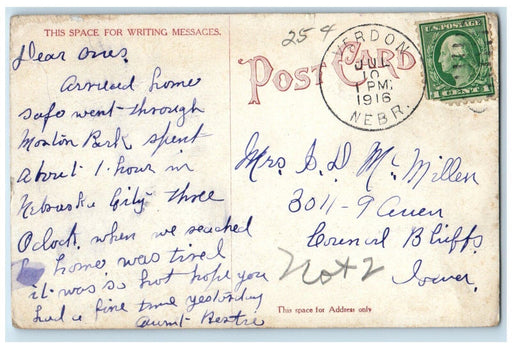 THIS SPACE FOR WRITING MESSAGES.
Dear ones.
Arrived home
safe went through
Morton Park spent
about 1 hour in
Nebraska City three
O'clock when we reached
home was tired
it was so hot hope you
had a fine time yesterday
Aunt Bertie
254
POST CARD
VERDON
JUL
10
1 PM
1916
NEBR.
U.S. POSTAGE
1 CENT 1
Mrs. S. D. McMillen
3011-9 Aven
Council Bluffs
Iowa.
This space for Address only